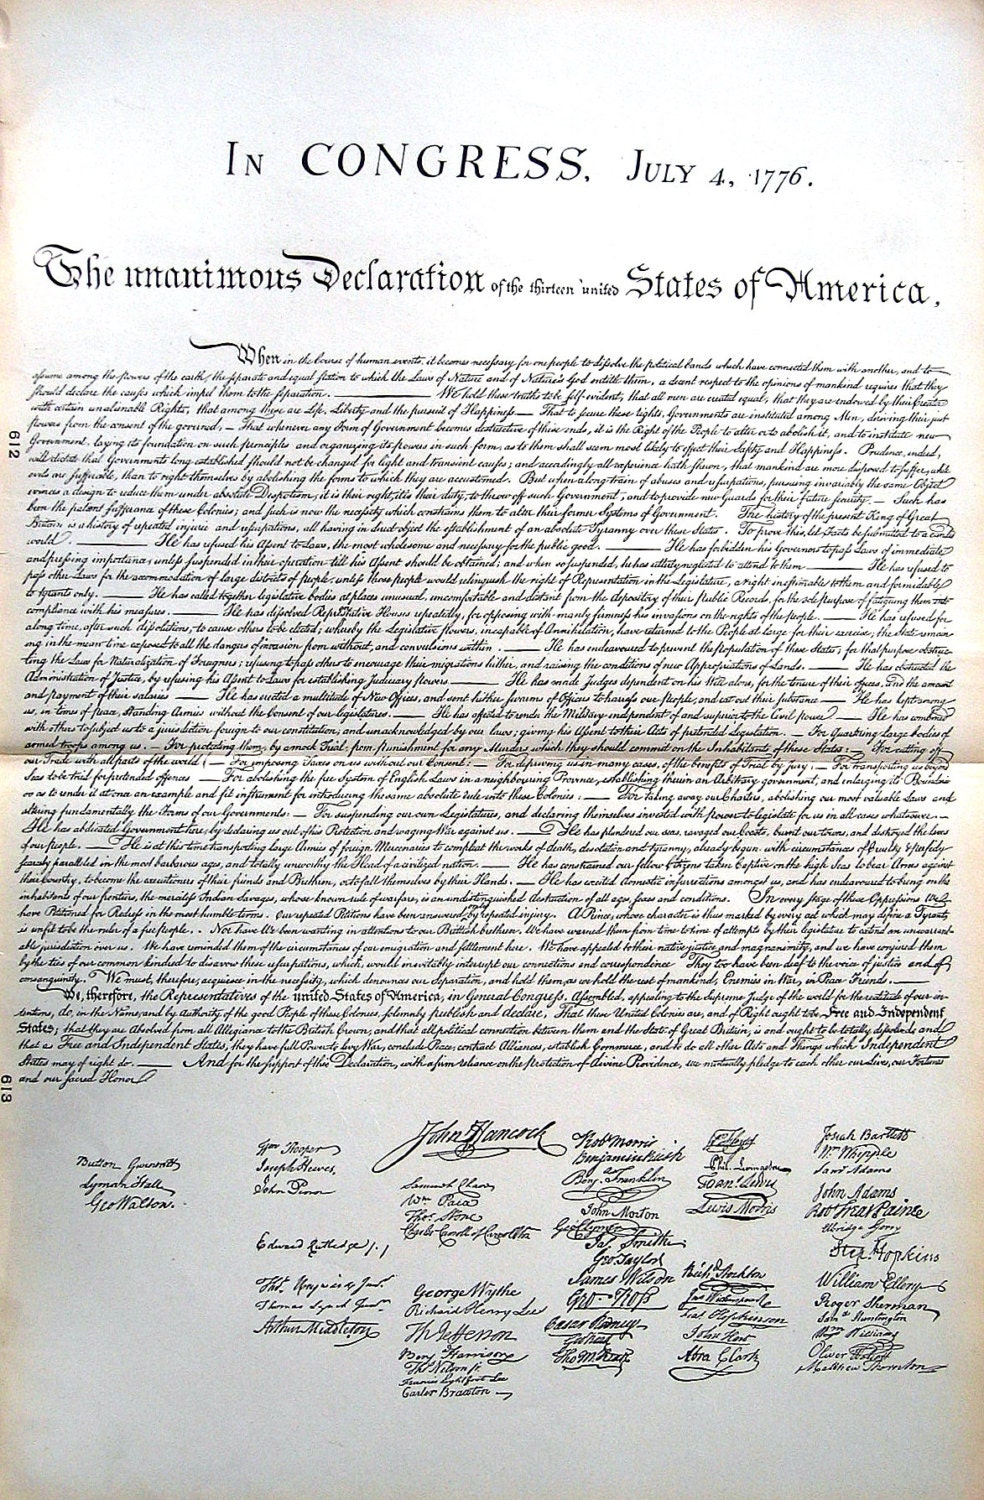 In CONGRESS, July 4, 1776.
The unanimous Declaration of the thirteen united States of America,
When in the Course of human events, it becomes necessary for one people to dissolve the political bands which have connected them with another, and to
assume among the powers of the earth, the separate and equal station to which the Laws of Nature and of Nature's God entitle them, a decent respect to the opinions of mankind requires that they
should declare the causes which impel them to the separation. — We hold these truths to be self-evident, that all men are created equal, that they are endowed by their Creator
with certain unalienable Rights, that among these are Life, Liberty and the pursuit of Happiness. — That to secure these rights, Governments are instituted among Men, deriving their just
powers from the consent of the governed, — That whenever any Form of Government becomes destructive of these ends, it is the Right of the People to alter or to abolish it, and to institute new
Government, laying its foundation on such principles and organizing its powers in such form, as to them shall seem most likely to effect their Safety and Happiness. Prudence, indeed,
will dictate that Governments long established should not be changed for light and transient causes; and accordingly all experience hath shewn, that mankind are more disposed to suffer, while
evils are sufferable, than to right themselves by abolishing the forms to which they are accustomed. But when a long train of abuses and usurpations, pursuing invariably the same Object
evinces a design to reduce them under absolute Despotism, it is their right, it is their duty, to throw off such Government, and to provide new Guards for their future security. — Such has
been the patient sufferance of these Colonies; and such is now the necessity which constrains them to alter their former Systems of Government. The history of the present King of Great
Britain is a history of repeated injuries and usurpations, all having in direct object the establishment of an absolute Tyranny over these States. To prove this, let Facts be submitted to a candid
world. — He has refused his Assent to Laws, the most wholesome and necessary for the public good. — He has forbidden his Governors to pass Laws of immediate
and pressing importance, unless suspended in their operation till his Assent should be obtained; and when so suspended, he has utterly neglected to attend to them. — He has refused to
pass other Laws for the accommodation of large districts of people, unless those people would relinquish the right of Representation in the Legislature, a right inestimable to them and formidable
to tyrants only. — He has called together legislative bodies at places unusual, uncomfortable and distant from the depository of their public Records, for the sole purpose of fatiguing them into
compliance with his measures. — He has dissolved Representative Houses repeatedly, for opposing with manly firmness his invasions on the rights of the people. — He has refused for
a long time, after such dissolutions, to cause others to be elected; whereby the Legislative powers, incapable of Annihilation, have returned to the People at large for their exercise; the State remain
ing in the mean time exposed to all the dangers of invasion from without, and convulsions within. — He has endeavoured to prevent the population of these States; for that purpose obstruc
ting the Laws for Naturalization of Foreigners; refusing to pass others to encourage their migrations hither, and raising the conditions of new Appropriations of Lands. — He has obstructed the
Administration of Justice, by refusing his Assent to Laws for establishing Judiciary powers — He has made Judges dependent on his Will alone, for the tenure of their offices, and the amount
and payment of their salaries — He has erected a multitude of New Offices, and sent hither swarms of Officers to harass our People, and eat out their substance — He has kept among
us, in times of peace, Standing Armies without the Consent of our legislatures. — He has affected to render the Military independent of and superior to the Civil power — He has combined
with others to subject us to a jurisdiction foreign to our constitution, and unacknowledged by our laws; giving his Assent to their Acts of pretended Legislation. — For Quartering large bodies of
armed troops among us: — For protecting them, by a mock Trial, from punishment for any Murders which they should commit on the Inhabitants of these States: — For cutting off
our Trade with all parts of the world: — For imposing Taxes on us without our Consent: — For depriving us in many cases, of the benefits of Trial by jury; — For transporting us beyond
Seas to be tried for pretended offences — For abolishing the free System of English Laws in a neighbouring Province, establishing therein an Arbitrary government, and enlarging its Boundaries
so as to render it at once an example and fit instrument for introducing the same absolute rule into these Colonies: — For taking away our Charters, abolishing our most valuable Laws and
altering fundamentally the Forms of our Governments: — For suspending our own Legislatures, and declaring themselves invested with power to legislate for us in all cases whatsoever. —
He has abdicated Government here, by declaring us out of his Protection and waging War against us. — He has plundered our seas, ravaged our Coasts, burnt our towns, and destroyed the lives
of our people. — He is at this time transporting large Armies of foreign Mercenaries to compleat the works of death, desolation and tyranny, already begun with circumstances of Cruelty & perfidy
scarcely paralleled in the most barbarous ages, and totally unworthy the Head of a civilized nation. — He has constrained our fellow Citizens taken Captive on the high Seas to bear Arms against
their Country, to become the executioners of their friends and Brethren, or to fall themselves by their Hands. — He has excited domestic insurrections amongst us, and has endeavoured to bring on the
inhabitants of our frontiers, the merciless Indian Savages, whose known rule of warfare, is an undistinguished destruction of all ages, sexes and conditions. In every stage of these Oppressions We
have Petitioned for Redress in the most humble terms: Our repeated Petitions have been answered only by repeated injury. A Prince, whose character is thus marked by every act which may define a Tyrant,
is unfit to be the ruler of a free people. Nor have We been wanting in attentions to our Brittish brethren. We have warned them from time to time of attempts by their legislature to extend an unwarrant
able jurisdiction over us. We have reminded them of the circumstances of our emigration and settlement here. We have appealed to their native justice and magnanimity, and we have conjured them
by the ties of our common kindred to disavow these usurpations, which, would inevitably interrupt our connections and correspondence. They too have been deaf to the voice of justice and of
consanguinity. We must, therefore, acquiesce in the necessity, which denounces our Separation, and hold them, as we hold the rest of mankind, Enemies in War, in Peace Friends. —
We, therefore, the Representatives of the united States of America, in General Congress, Assembled, appealing to the Supreme Judge of the world for the rectitude of our in-
tentions, do, in the Name, and by Authority of the good People of these Colonies, solemnly publish and declare, That these United Colonies are, and of Right ought to be Free and Independent
States; that they are Absolved from all Allegiance to the British Crown, and that all political connection between them and the State of Great Britain, is and ought to be totally dissolved; and
that as Free and Independent States, they have full Power to levy War, conclude Peace, contract Alliances, establish Commerce, and to do all other Acts and Things which Independent
States may of right do. — And for the support of this Declaration, with a firm reliance on the protection of divine Providence, we mutually pledge to each other our Lives, our Fortunes
and our sacred Honor
612
613
Button Gwinnett
Lyman Hall
Geo Walton.
Wm Hooper
Joseph Hewes,
John Penn
Edward Rutledge
Thos Heyward Junr.
Thomas Lynch Junr.
Arthur Middleton
John Hancock
Samuel Chase
Wm Paca
Thos Stone
Charles Carroll of Carrollton
George Wythe
Richard Henry Lee
Th Jefferson
Benj Harrison
Thos Nelson jr
Francis Lightfoot Lee
Carter Braxton
Robt Morris
Benjamin Rush
Benj. Franklin
John Morton
Geo Clymer
Jas Smith
Geo Taylor
James Wilson
Geo Ross
Caesar Rodney
Geo Read
Tho M:Kean
Phil. Livingston
Lewis Morris
Richd Stockton
Jno Witherspoon
Fras Hopkinson
John Hart
Abra Clark
Josiah Bartlett
Wm Whipple
Saml Adams
John Adams
Robt Treat Paine
Elbridge Gerry
Step. Hopkins
William Ellery
Roger Sherman
Saml Huntington
Wm Williams
Oliver Wolcott
Matthew Thornton